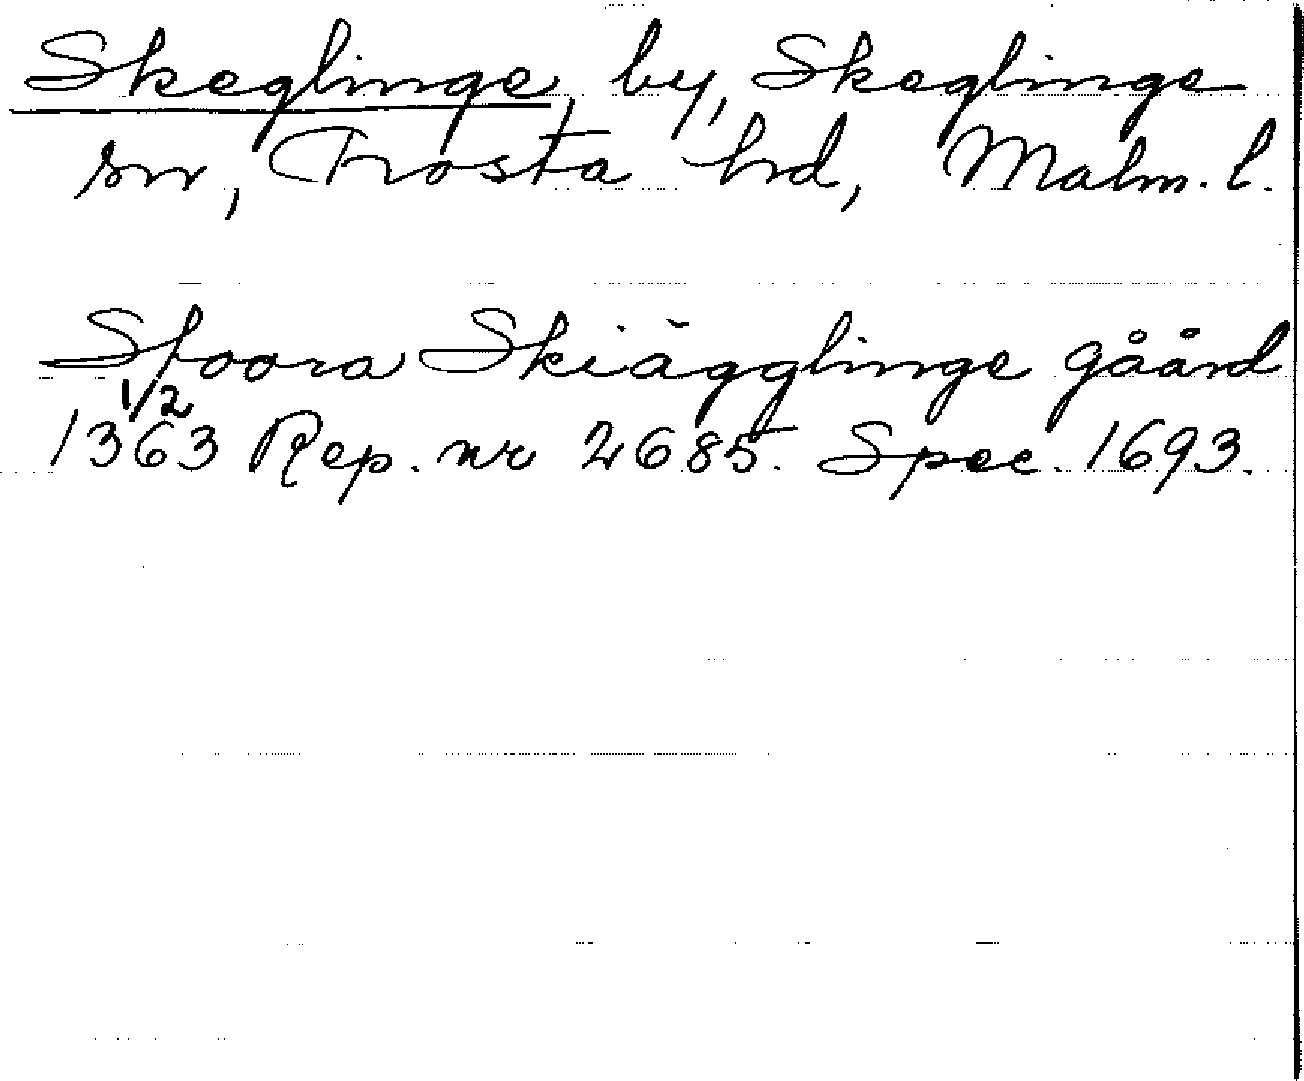 Skeglinge, by, Skeglinge
sn, Frosta hd, Malm. l.
Stoora Skiägglinge gåård
1/2
1363 Rep. nr 2685. Spec. 1693.